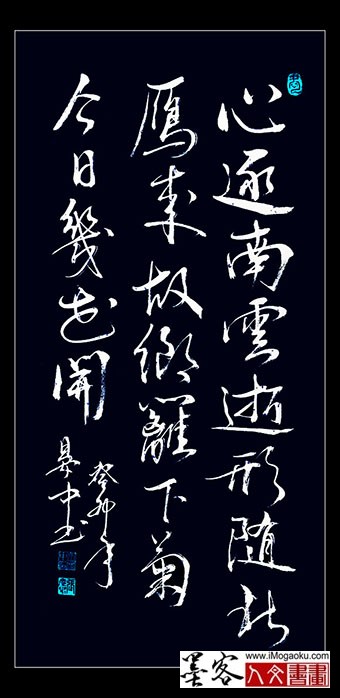 心逐南雲逝形随北
鴈來故鄉籬下菊
今日幾花開
癸卯年
昊中书
www.iMogaoku.com
墨客
人文書畫